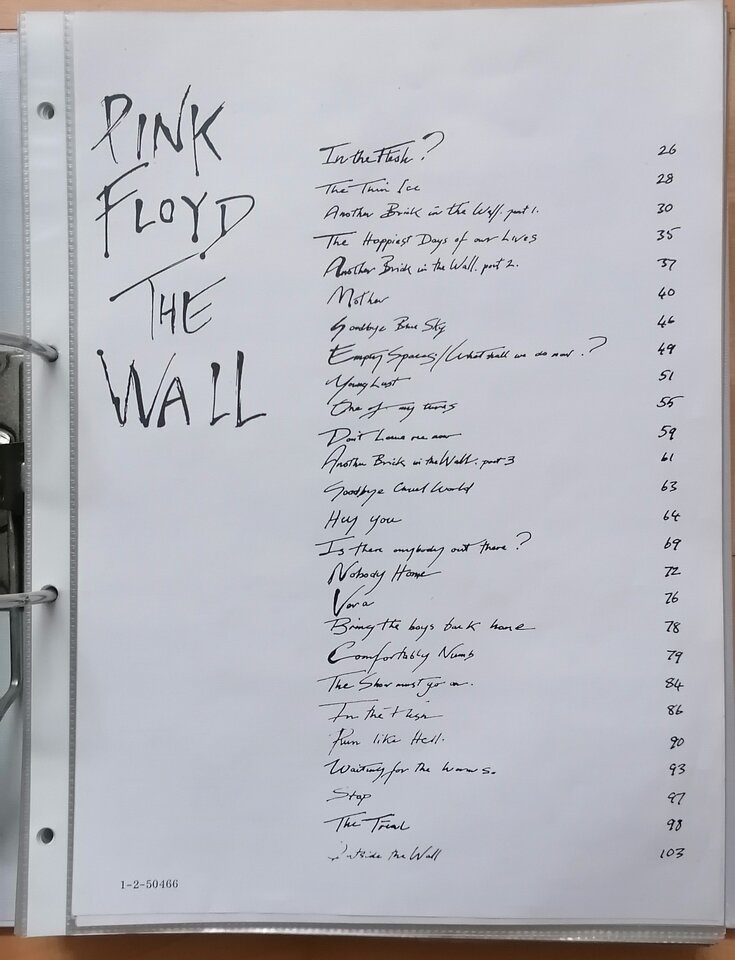 PINK
FLOYD
THE
WALL
In the Flesh? 26
The Thin Ice 28
Another Brick in the Wall. part 1. 30
The Happiest Days of our Lives 35
Another Brick in the Wall. part 2. 37
Mother 40
Goodbye Blue Sky 46
Empty Spaces/What shall we do now? 49
Young Lust 51
One of my turns 55
Don't Leave me now 59
Another Brick in the Wall. part 3 61
Goodbye Cruel World 63
Hey you 64
Is there anybody out there? 69
Nobody Home 72
Vera 76
Bring the boys back home 78
Comfortably Numb 79
The Show must go on. 84
In the Flesh 86
Run like Hell. 90
Waiting for the worms. 93
Stop 97
The Trial 98
Outside the Wall 103
1-2-50466